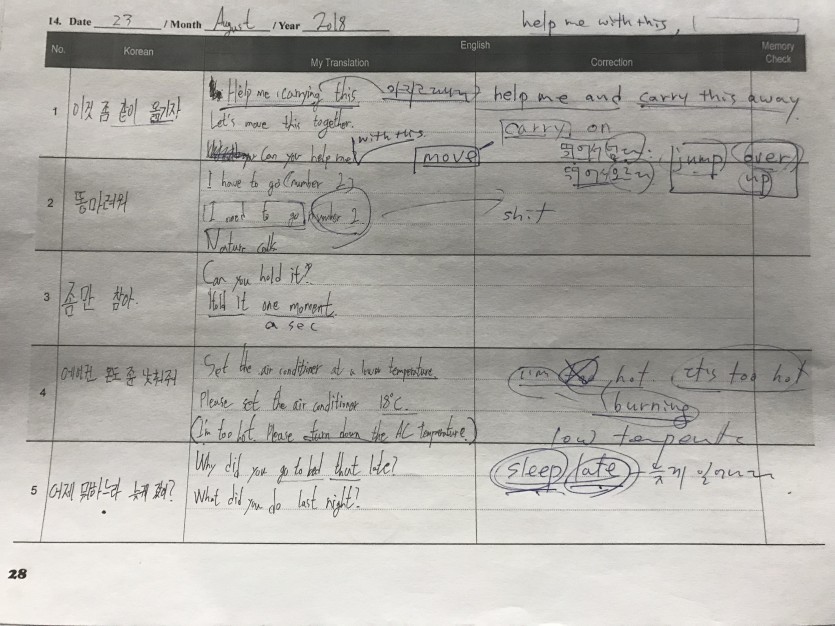 14. Date 23 / Month August / Year 2018
help me with this,
No. Korean English Memory Check
My Translation Correction
1 이것 좀 같이 옮기자
Help me carrying this
help me and carry this away.
Let's move this together.
carry on
with this.
Can you help me
move
jump over
up
2 똥마려워
I have to go (number 2)
I need to go number 2
shit
Nature calls
3 좀만 참아.
Can you hold it?
Hold it one moment.
a sec
4 에어컨 온도 좀 낮춰줘
Set the air conditioner at a lower temperature.
I'm too hot. it's too hot
Please set the air conditioner 18°C.
burning
(I'm too hot. Please turn down the AC temperature.)
low
5 어제 뭐하느라 늦게 잤어?
Why did you go to bed that late?
sleep late 늦게 일어나다
What did you do last night?
28